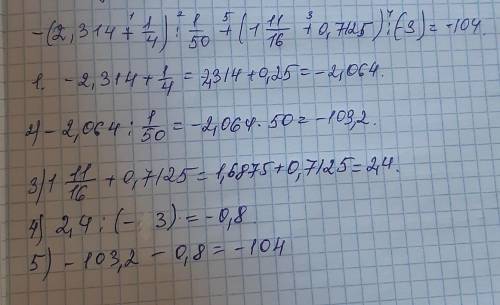 -(2,314 + 1/4) : 1/50 + (1 11/16 + 0,7125) : (-3) = -104.
1. -2,314 + 1/4 = 2,314 + 0,25 = -2,064.
2) -2,064 : 1/50 = -2,064 · 50 = -103,2.
3) 1 11/16 + 0,7125 = 1,6875 + 0,7125 = 2,4.
4) 2,4 : (-3) = -0,8.
5) -103,2 - 0,8 = -104